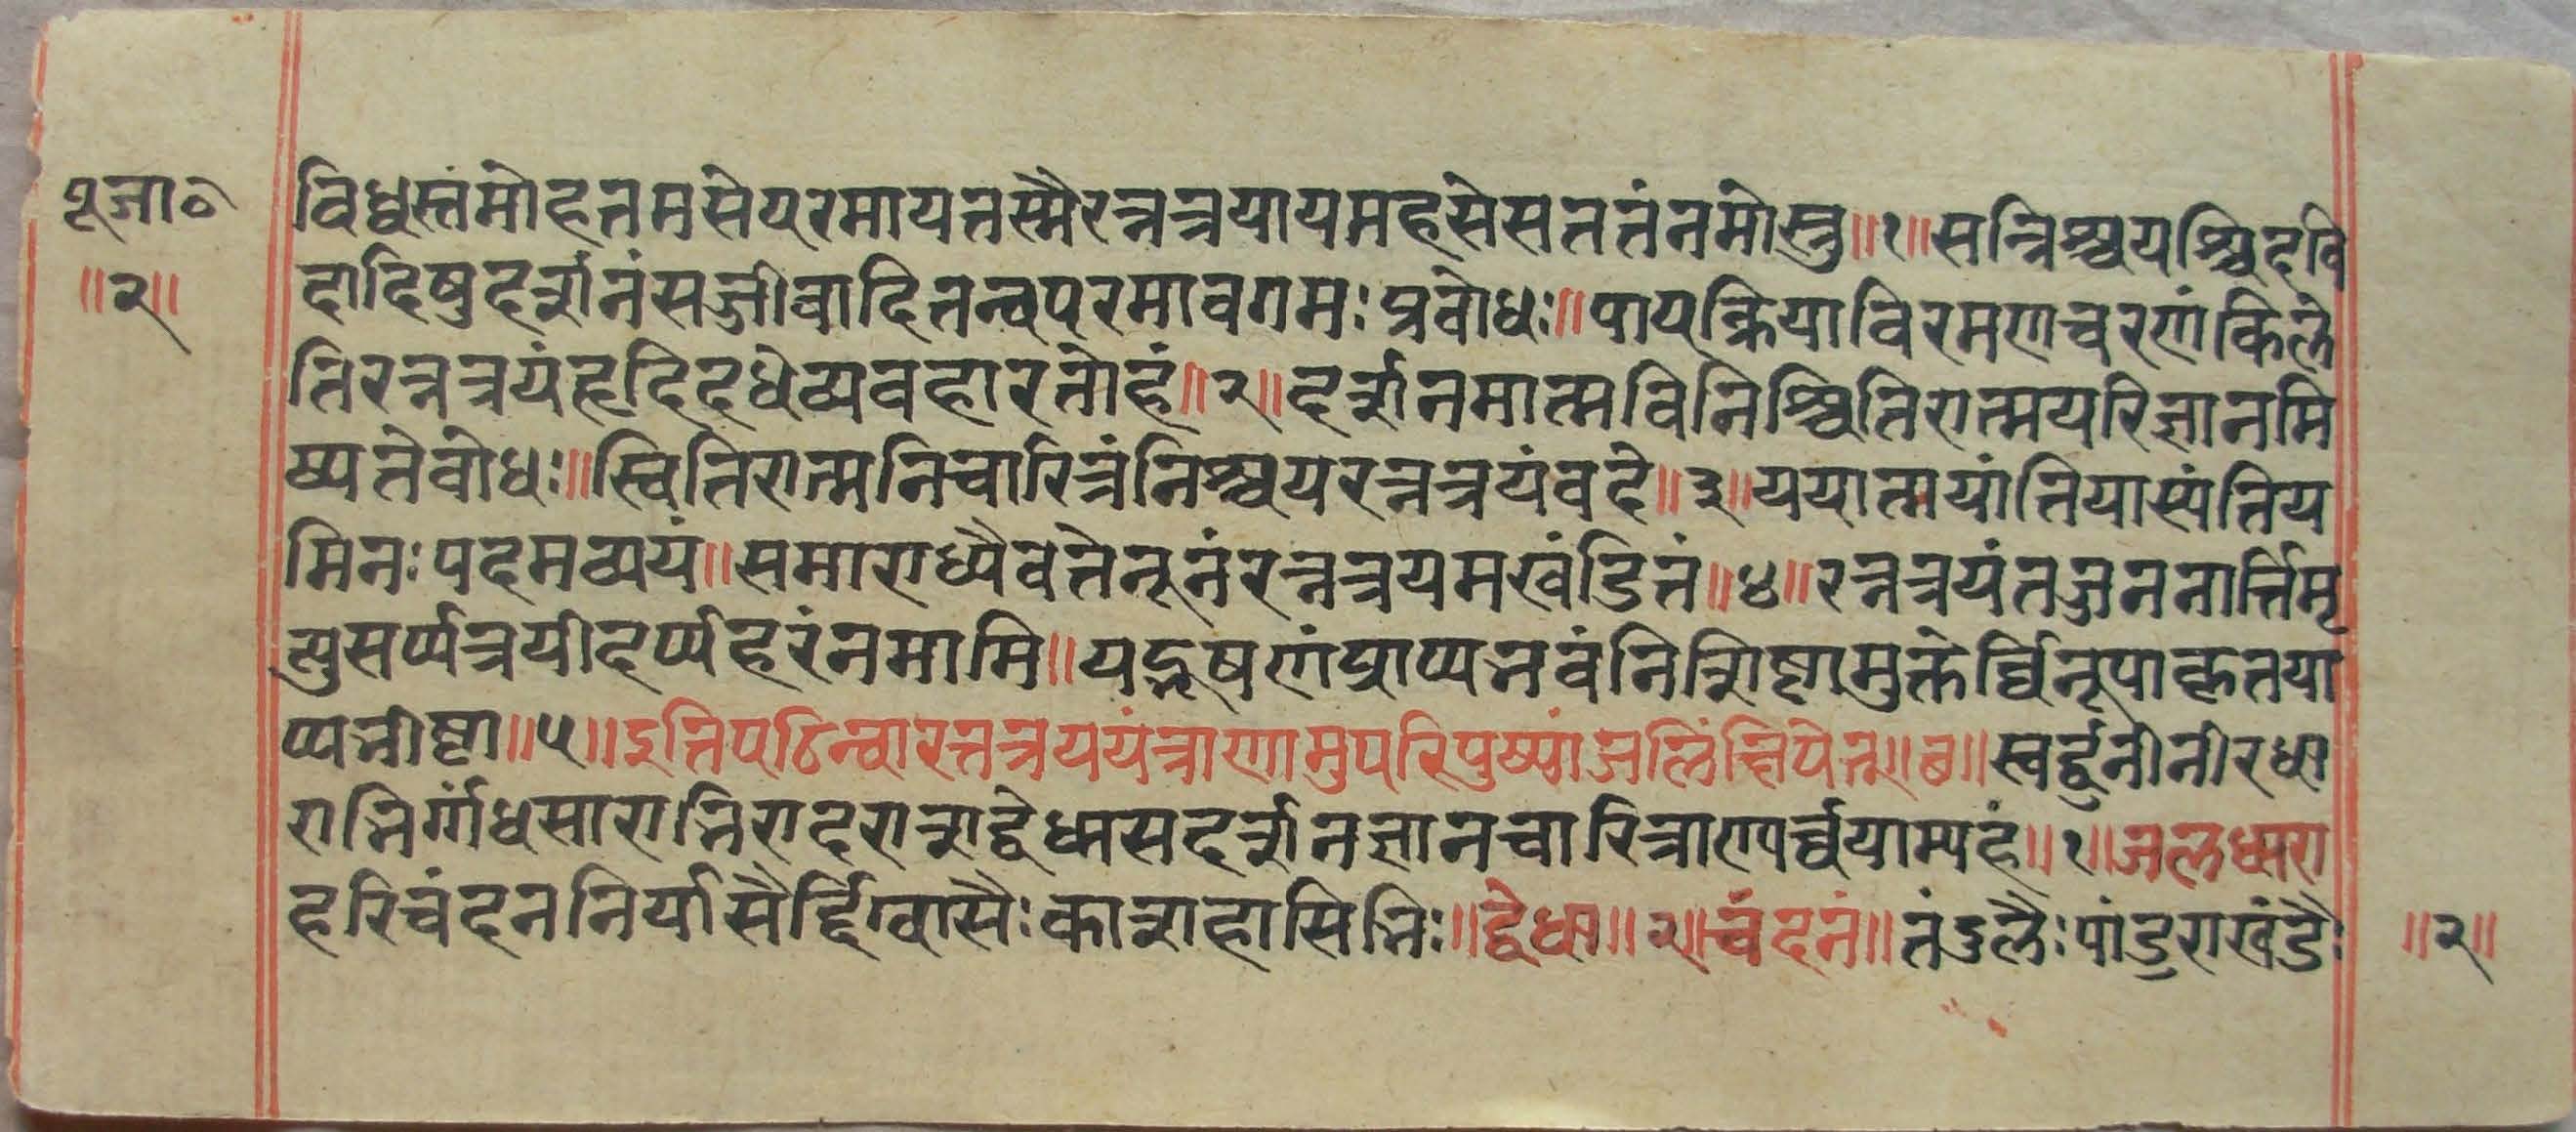 पूजा०
॥२॥
विध्वस्तंमोहतमसेपरमायतस्मैरत्नत्रयायमहसेसततंनमोस्तु॥१॥सन्निश्चयश्चिदचि
दादिषुदर्शनंसज्जीवादितत्त्वपरमावगमःप्रबोधः॥पापक्रियाविरमणचरणंकिले
तिरत्नत्रयंहृदिदधेव्यवहारतोहं॥२॥दर्शनमात्मविनिश्चितिरात्मपरिज्ञानमि
ष्यतेबोधः॥स्थितिरात्मनिचारित्रंनिश्चयरत्नत्रयंवदे॥३॥ययात्मयांतियास्यंतिय
मिनःपदमव्ययं॥समाराध्यैवतेनूनंरत्नत्रयमखंडितं॥४॥रत्नत्रयंतज्जननार्त्तिमृ
त्युसर्प्पत्रयीदर्प्पहरंनमामि॥यद्भूषणंप्राप्यभवंतिशिष्टामुक्तेर्विरूपाकृतया
प्यभीष्टा॥५॥इतिपठित्वारत्नत्रययंत्राणामुपरिपुष्पांजलिंक्षिपेत्॥छ॥स्वर्द्धुनीनीरधा
राभिर्गंधसाराभिरादरात्॥द्वेधासदर्शनज्ञानचारित्राण्यर्च्चयाम्यहं॥१॥जलधारा
हरिचंदननिर्यासैर्द्दिग्वासैःकाशहासिभिः॥द्वेधा॥२॥चंदनं॥तंडुलैःपांडुराखंडैः
॥२॥